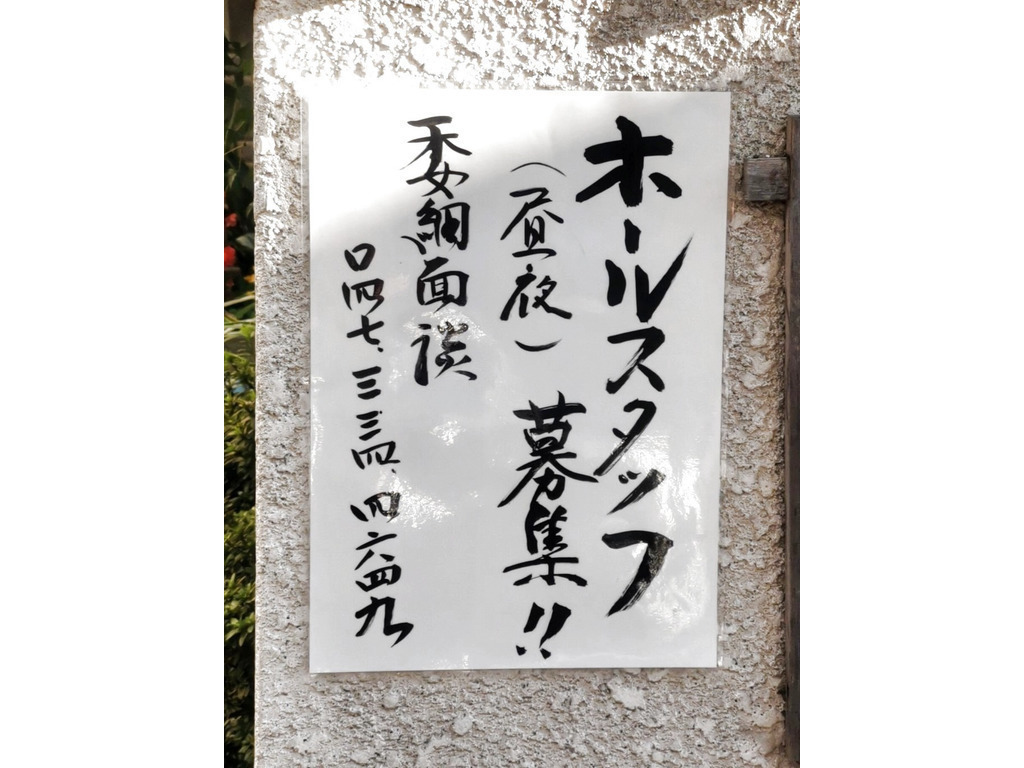 ホールスタッフ
（昼夜）募集!!
委細面談
〇四七、三三四、四六四九